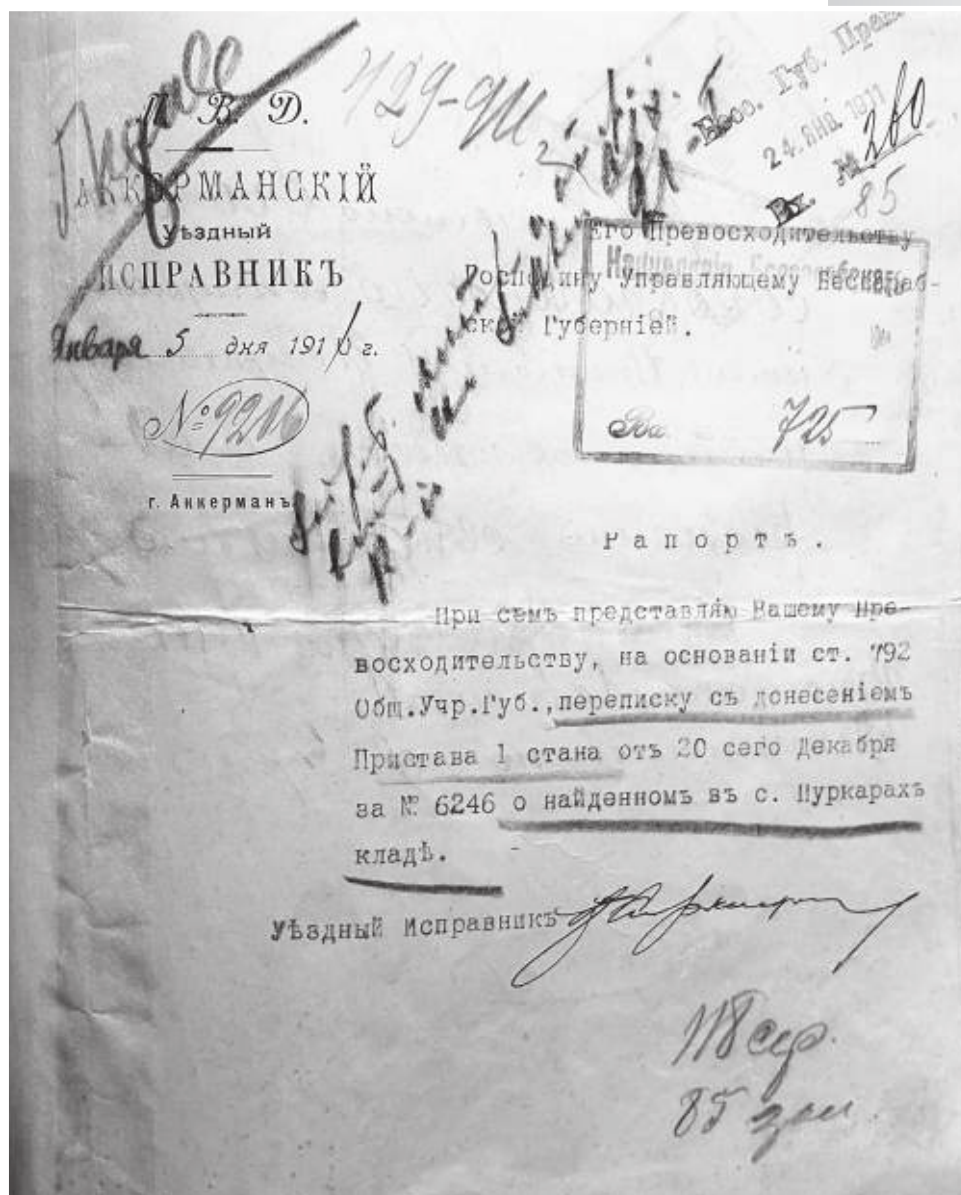 М. В. Д.
АККЕРМАНСКІЙ
Уѣздный
ИСПРАВНИКЪ
Января 5 дня 1911 г.
№ 9216
г. Аккерманъ.
729-911
Бесс. Губ.
24. ЯНВ. 1911
Вх. № 260
85
Его Превосходительству
Господину Управляющему Бессараб-
ской Губерніей.
Вх. 725
Рапортъ.
При семъ представляю Вашему Пре-
восходительству, на основаніи ст. 792
Общ.Учр.Губ.,переписку съ донесеніемъ
Пристава 1 стана отъ 20 сего Декабря
за № 6246 о найденномъ въ с. Пуркарахъ
кладѣ.
Уѣздный Исправникъ
118 сер.
85 зол.